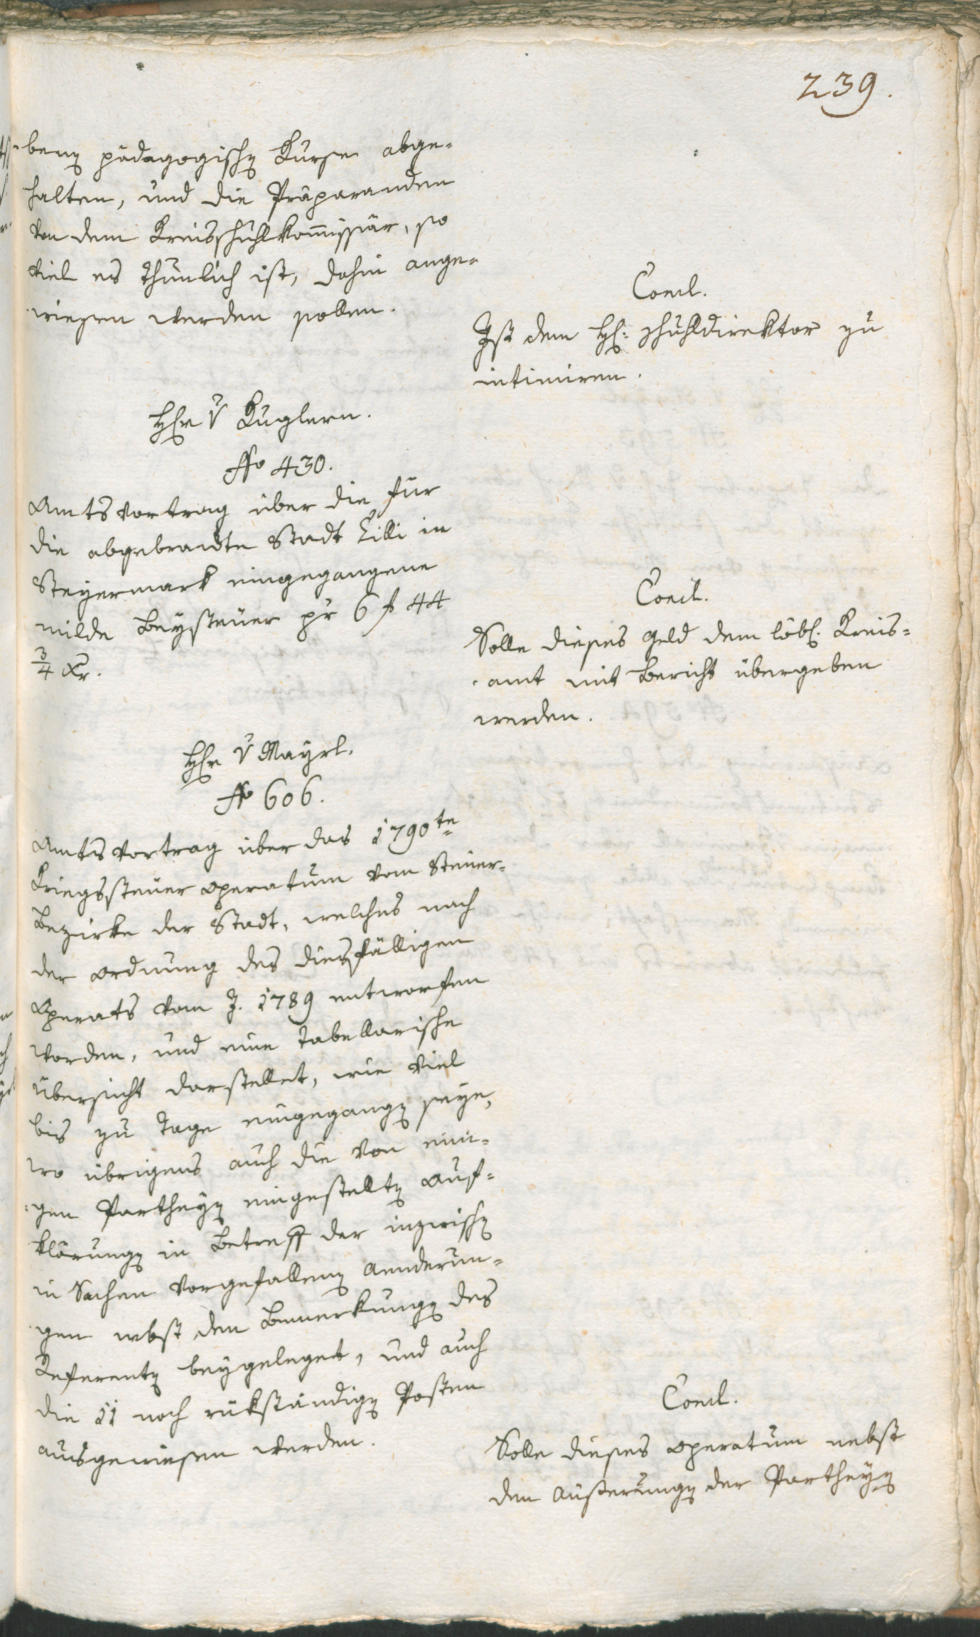 239.
ben pädagogischen Kurse abge-
halten, und die Präparanden
von dem Kreisschuhlkommissär, so
viel es thunlich ist, dahin ange-
wiesen werden sollen.
Concl.
Ist dem H: Schuhldirektor zu
intimiren.
Hr v Kuglern.
No 430.
Amtsvortrag über die für
die abgebrandte Stadt Cilli in
Steyermark eingegangene
milde Beysteuer pr 6 f 44
3/4 Xr.
Concl.
Solle dieses Geld dem löbl. Kreis-
amt mit Bericht übergeben
werden.
Hr v Mayrl.
No 606.
Amtsvortrag über das 1790te
Kriegssteuer operatum vom Steuer-
Bezirke der Stadt, welches nach
der Ordnung des diesfälligen
Operats vom J. 1789 entworfen
worden, und eine tabellarische
übersicht darstellet, wie viel
bis zu Tage eingegangen seye,
wo übrigens auch die von eini-
gen Partheyen eingestellten Auf-
klärungen in Betreff der inzwischen
in Sachen vorgefallenen Aenderun-
gen nebst den Bemerkungen des
Referenten beygeleget, und auch
die 11 noch rükständigen Posten
ausgewiesen werden.
Concl.
Solle dieses operatum nebst
den Äußerungen der Partheyen